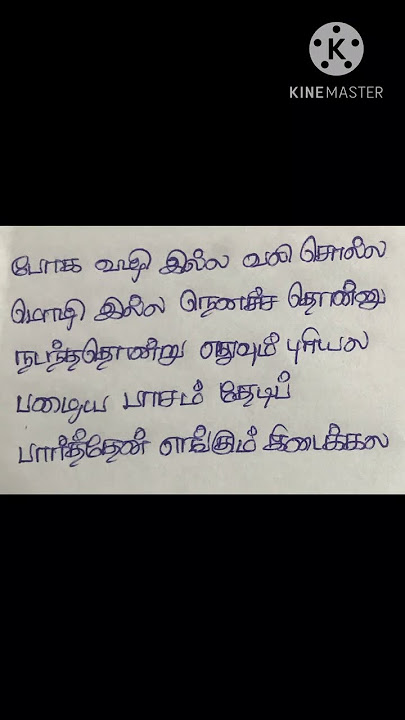 KINEMASTER
போக வழி இல்ல வலி சொல்ல
மொழி இல்ல நெனச்ச தொண்ணு
நடந்ததொன்று எதுவும் புரியல
பழைய பாசம் தேடிப்
பார்த்தேன் எங்கும் கிடைக்கல